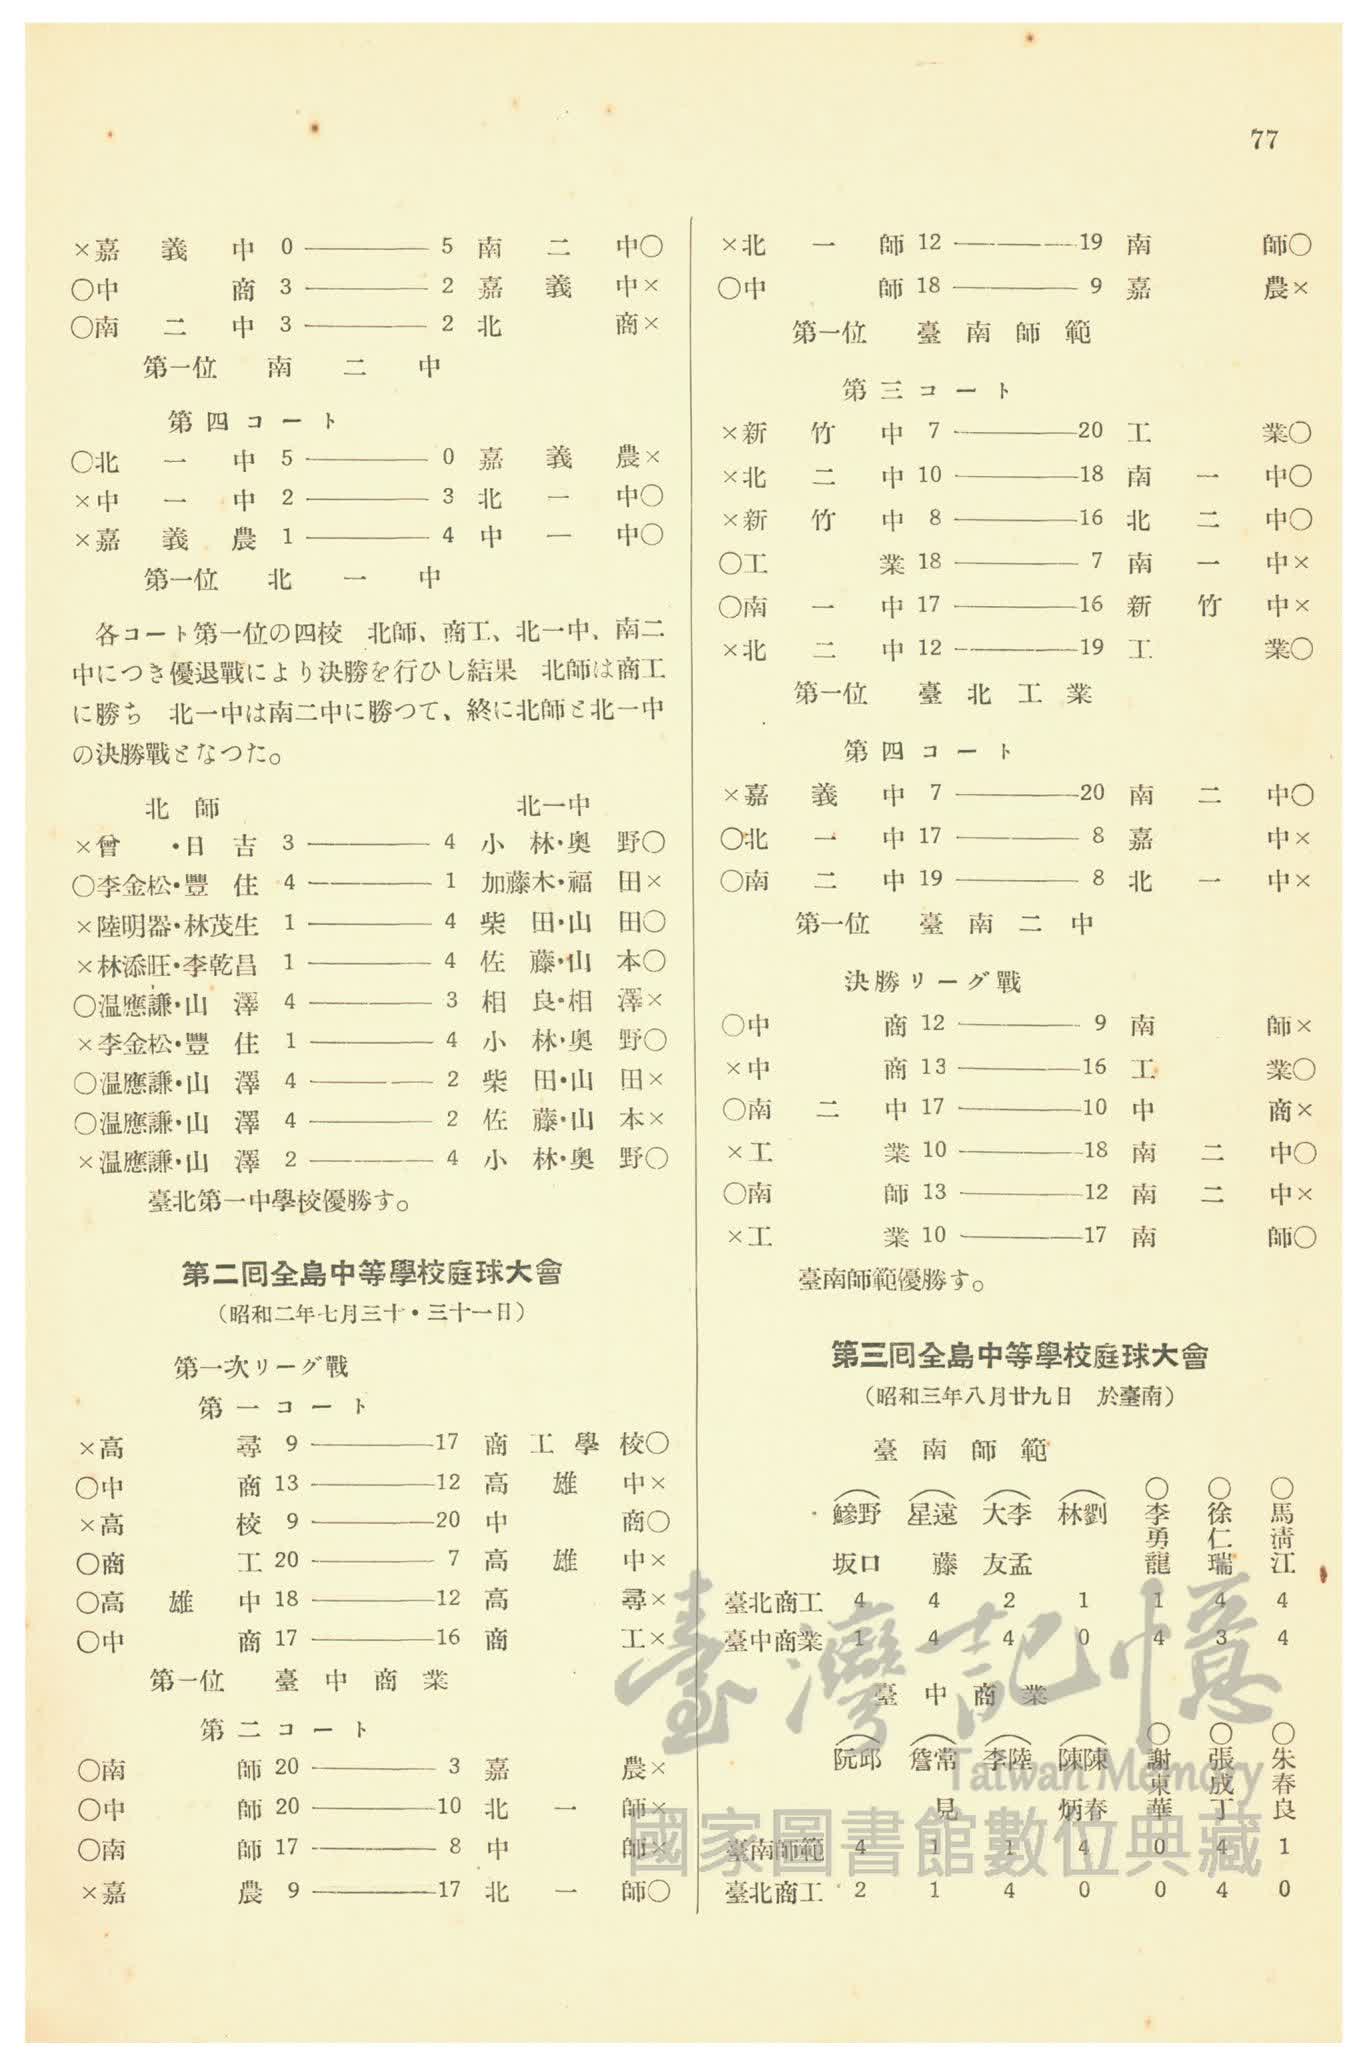 77
×嘉義中 0 ——— 5 南二中○
○中商 3 ——— 2 嘉義中×
○南二中 3 ——— 2 北商×
第一位 南二中
第四コート
○北一中 5 ——— 0 嘉義農×
×中一中 2 ——— 3 北一中○
×嘉義農 1 ——— 4 中一中○
第一位 北一中
各コート第一位の四校 北師、商工、北一中、南二
中につき優退戰により決勝を行ひし結果 北師は商工
に勝ち 北一中は南二中に勝つて、終に北師と北一中
の決勝戰となつた。
北師 北一中
×曾・日吉 3 ——— 4 小林・奧野○
○李金松・豐住 4 ——— 1 加藤木・福田×
×陸明器・林茂生 1 ——— 4 柴田・山田○
×林添旺・李乾昌 1 ——— 4 佐藤・山本○
○温應謙・山澤 4 ——— 3 相良・相澤×
×李金松・豐住 1 ——— 4 小林・奧野○
○温應謙・山澤 4 ——— 2 柴田・山田×
○温應謙・山澤 4 ——— 2 佐藤・山本×
×温應謙・山澤 2 ——— 4 小林・奧野○
臺北第一中學校優勝す。
第二囘全島中等學校庭球大會
（昭和二年七月三十・三十一日）
第一次リーグ戰
第一コート
×高尋 9 ——— 17 商工學校○
○中商 13 ——— 12 高雄中×
×高校 9 ——— 20 中商○
○商工 20 ——— 7 高雄中×
○高雄中 18 ——— 12 高尋×
○中商 17 ——— 16 商工×
第一位 臺中商業
第二コート
○南師 20 ——— 3 嘉農×
○中師 20 ——— 10 北一師×
○南師 17 ——— 8 中師×
×嘉農 9 ——— 17 北一師○
×北一師 12 ——— 19 南師○
○中師 18 ——— 9 嘉農×
第一位 臺南師範
第三コート
×新竹中 7 ——— 20 工業○
×北二中 10 ——— 18 南一中○
×新竹中 8 ——— 16 北二中○
○工業 18 ——— 7 南一中×
○南一中 17 ——— 16 新竹中×
×北二中 12 ——— 19 工業○
第一位 臺北工業
第四コート
×嘉義中 7 ——— 20 南二中○
○北一中 17 ——— 8 嘉中×
○南二中 19 ——— 8 北一中×
第一位 臺南二中
決勝リーグ戰
○中商 12 ——— 9 南師×
×中商 13 ——— 16 工業○
○南二中 17 ——— 10 中商×
×工業 10 ——— 18 南二中○
○南師 13 ——— 12 南二中×
×工業 10 ——— 17 南師○
臺南師範優勝す。
第三囘全島中等學校庭球大會
（昭和三年八月廿九日 於臺南）
臺南師範
○馬淸江
○徐仁瑞
○李勇龍
（劉林
（李孟大友
（遠藤星
（野口鰺坂
臺北商工 4 4 2 1 1 4 4
臺中商業 1 4 4 0 4 3 4
臺中商業
○朱春良
○張成丁
○謝東華
（陳春陳炳
（陸李
（常見詹
（邱阮
臺南師範 4 1 1 4 0 4 1
臺北商工 2 1 4 0 0 4 0
臺灣記憶
Taiwan Memory
國家圖書館數位典藏